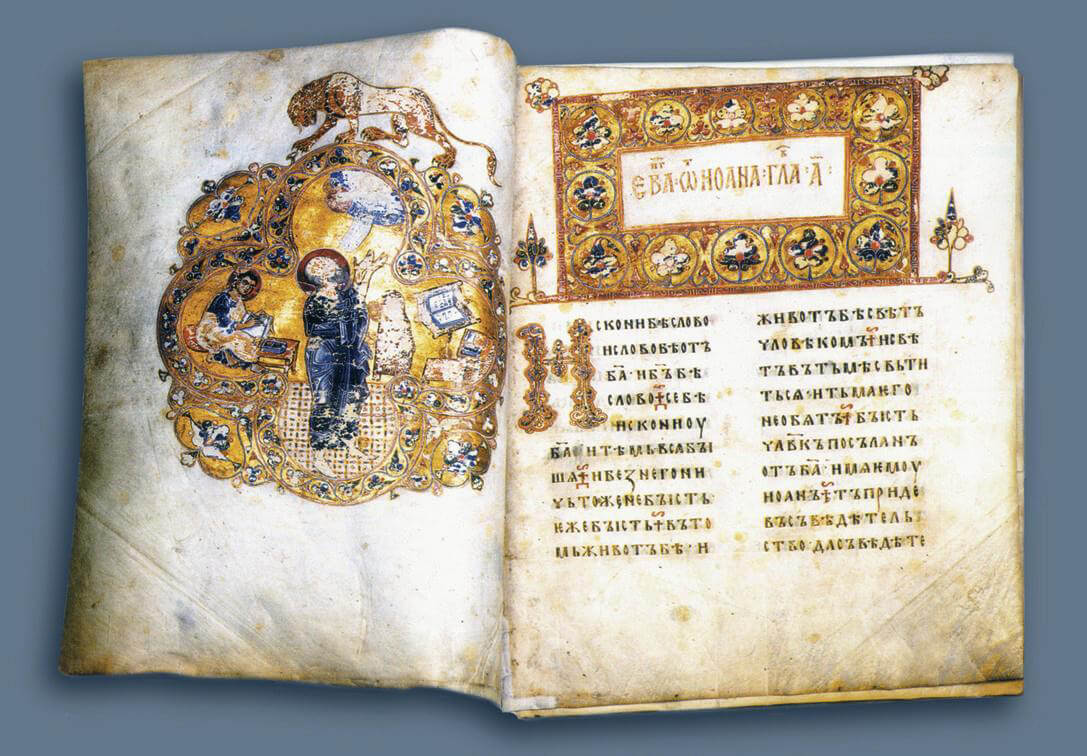 ЕВА·ѾИОАНА·ГЛА·А҃·
ИСКОНИБѢСЛОВО
ИСЛОВОБѢОТЪ
Б҃АИБ҃ЪБѢ
СЛОВО СЕБѢ
ИСКОНИОУ
Б҃АИТѢМЬВСАБЫ
ШѦ ИБЕЗНЕГОНИ
ЧЬТОЖЕНЕБЫСТЬ
ЕЖЕБЫСТЬ ВЪТО
МЬЖИВОТЪБѢ·И
ЖИВОТЪБѢСВѢТЪ
ЧЛОВѢКОМЪ ИСВѢ
ТЪВЪТЬМѢСВЬТИ
ТЬСѦ·ИТЬМАЕГО
НЕОБѦТЪ БЫСТЬ
ЧЛ҃ВКЪПОСЪЛАНЪ
ОТЪБ҃А·ИМѦЕМОУ
ИОАНЪ ТЪПРИДЕ
ВЪСЪВѢДѢТЕЛЬ
СТВО·ДАСЪВѢДѢТЕ